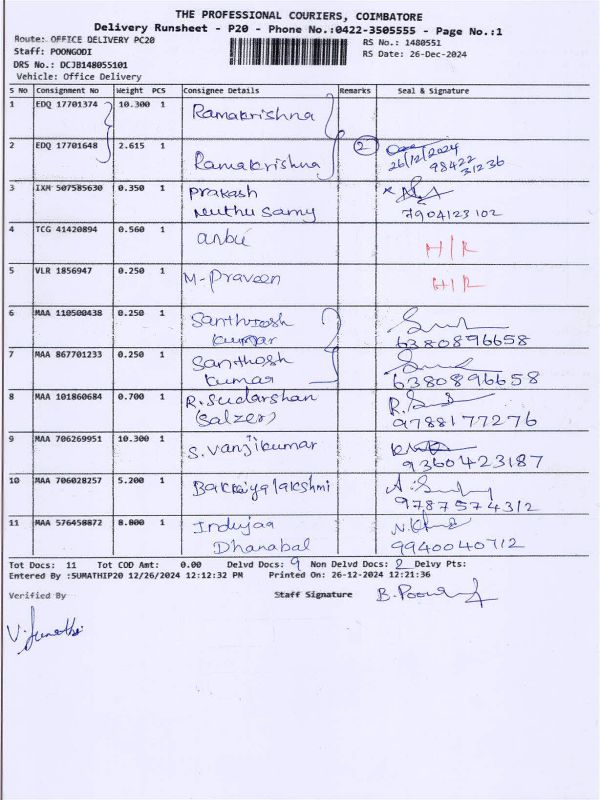 THE PROFESSIONAL COURIERS, COIMBATORE
Delivery Runsheet - P20 - Phone No.:0422-3505555 - Page No.:1
Route: OFFICE DELIVERY PC20
RS No.: 1480551
Staff: POONGODI
RS Date: 26-Dec-2024
DRS No.: DCJB148055101
Vehicle: Office Delivery
S No Consignment No Weight PCS Consignee Details Remarks Seal & Signature
1 EDQ 17701374 10.300 1 Ramakrishna
2 EDQ 17701648 2.615 1 Ramakrishna 2
26/12/2024
98422
31236
3 IXM 507585630 0.350 1 Prakash
Muthu Samy 7904123102
4 TCG 41420894 0.560 1 anbu H/R
5 VLR 1856947 0.250 1 M-Praveen H/R
6 MAA 110500438 0.250 1 Santhosh
kumar 6380896658
7 MAA 867701233 0.250 1 Santhosh
kumar 6380896658
8 MAA 101860684 0.700 1 R.Sudarshan
(Salzer) 9788177276
9 MAA 706269951 10.300 1 S.Vanjikumar
9360423187
10 MAA 706028257 5.200 1 Bakkiyalakshmi
9787574312
11 MAA 576458872 8.800 1 Indujaa
Dhanabal 9940040712
Tot Docs: 11 Tot COD Amt: 0.00 Delvd Docs: 9 Non Delvd Docs: 2 Delvy Pts:
Entered By :SUMATHIP20 12/26/2024 12:12:32 PM Printed On: 26-12-2024 12:21:36
Verified By Staff Signature
V.Sumathi